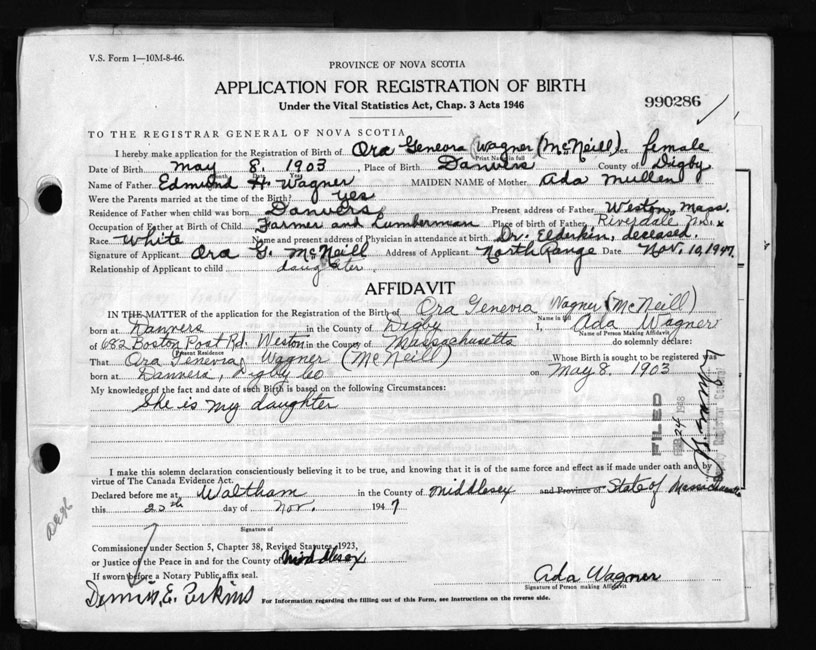 V.S. Form 1—10M-8-46.
PROVINCE OF NOVA SCOTIA
APPLICATION FOR REGISTRATION OF BIRTH
Under the Vital Statistics Act, Chap. 3 Acts 1946
990286
TO THE REGISTRAR GENERAL OF NOVA SCOTIA
I hereby make application for the Registration of Birth of Ora Geneora (Wagner (McNeill) Sex female
Print Name in full
Date of Birth May 8, 1903, Place of Birth Danvers County of Digby
Name of Father Edmund H. Wagner MAIDEN NAME of Mother Ada Mullen
Were the Parents married at the time of Birth? Yes
Residence of Father when child was born Danvers Present address of Father Weston, Mass.
Occupation of Father at Birth of Child Farmer and Lumberman Place of birth of Father Riverdale N.S. x
Race White Name and present address of Physician in attendance at birth Dr. Elderkin, deceased.
Signature of Applicant Ora G. McNeill Address of Applicant North Range Date Nov. 10, 1947.
Relationship of Applicant to child daughter.
AFFIDAVIT
IN THE MATTER of the application for the Registration of the Birth of Ora Genevra Wagner (McNeill)
Name in full
born at Danvers in the County of Digby I, Ada Wagner
Name of Person Making Affidavit
of 682 Boston Post Rd. Weston in the County of Massachusetts do solemnly declare:
Present Residence
That Ora Genevra Wagner (McNeill) Whose Birth is sought to be registered was
born at Danvers, Digby Co on May 8. 1903
My knowledge of the fact and date of such Birth is based on the following Circumstances:
She is my daughter
FILED
24 1948
I make this solemn declaration conscientiously believing it to be true, and knowing that it is of the same force and effect as if made under oath and by
virtue of The Canada Evidence Act.
Declared before me at Waltham in the County of Middlesex and Province of State of Massachusetts
this 22th day of Nov. 1947
Signature of
Commissioner under Section 5, Chapter 38, Revised Statutes, 1923,
or Justice of the Peace in and for the County of Middlesex
If sworn before a Notary Public, affix seal.
Ada Wagner
Signature of Person making Affidavit
Dennis E. Perkins
For Information regarding the filling out of this Form, see Instructions on the reverse side.